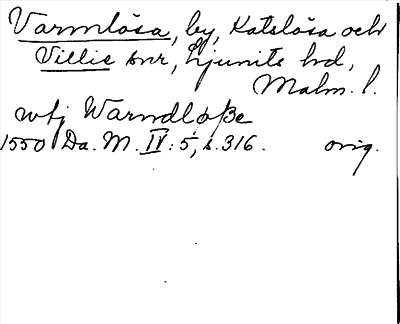 Varmlösa, by, Katslösa och
Villie snr, Ljunits hd,
Malm. l.
utj Warmdløsze
1550 Da. M. IV: 5, s. 316. orig.